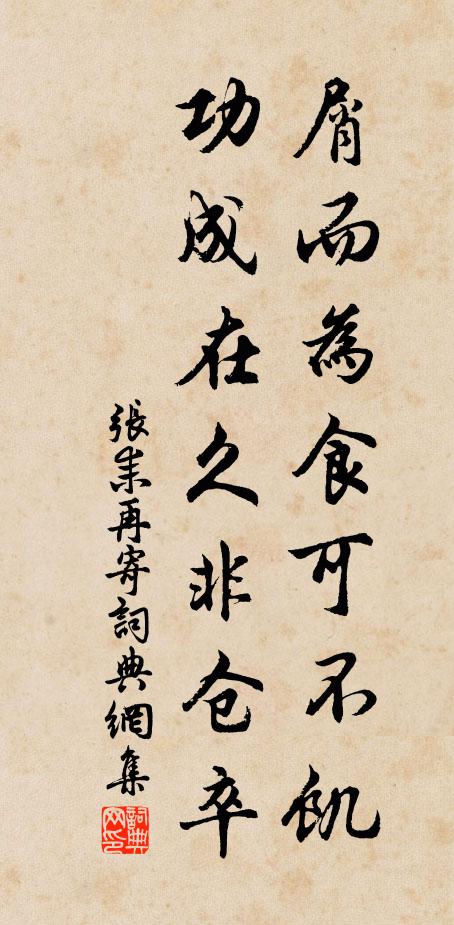 屑而為食可不飢
功成在久非仓卒
張耒再寄詞典網集
詞典网印